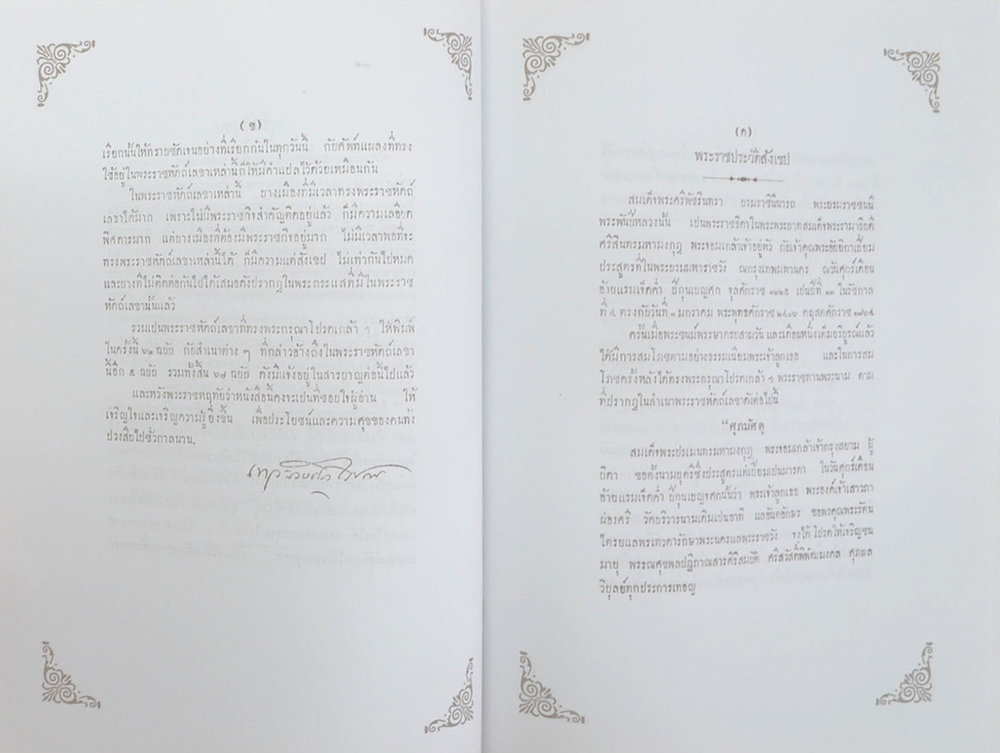 (ข)
เรียกนั้นให้ทราบชัดเจนอย่างที่เรียกกันในทุกวันนี้ กับศัพท์แผลงที่ทรง
ใช้อยู่ในพระราชหัตถ์เลขาเหล่านี้ก็ให้มีคำแปลไว้ด้วยเหมือนกัน
ในพระราชหัตถ์เลขาเหล่านี้ บางเรื่องที่มีเวลาทรงพระราชหัตถ์
เลขาได้มาก เพราะไม่มีพระราชกิจสำคัญติดอยู่แล้ว ก็มีความเลอียด
พิศดารมาก แต่บางเรื่องที่ต้องมีพระราชกิจอยู่มาก ไม่มีเวลาพอที่จะ
ทรงพระราชหัตถ์เลขาเหล่านี้ได้ ก็มีความแต่สังเขป ไม่เท่ากันไปหมด
และบางทีไม่ติดต่อกันไปได้เสมอดังปรากฏในพระกระแสที่มีในพระราช
หัตถ์เลขานั้นแล้ว
รวมเป็นพระราชหัตถ์เลขาที่ทรงพระกรุณาโปรดเกล้า ฯ ให้พิมพ์
ในครั้งนี้ ๖๒ ฉบับ กับสำเนาต่าง ๆ ที่กล่าวอ้างถึงในพระราชหัตถ์เลขา
นี้อีก ๕ ฉบับ รวมทั้งสิ้น ๖๗ ฉบับ ดังมีแจ้งอยู่ในสารบาญต่อนี้ไปแล้ว
และหวังพระราชหฤทัยว่าหนังสือนี้คงจะเป็นที่ชอบใจผู้อ่าน ให้
เจริญใจและเจริญความรู้ยิ่งขึ้น เพื่อประโยชน์และความศุขของคนทั้ง
ปวงสืบไปชั่วกาลนาน.
(ค)
พระราชประวัติสังเขป
สมเด็จพระศรีพัชรินทรา บรมราชินีนารถ พระบรมราชชนนี
พระพันปีหลวงนั้น เป็นพระราชธิดาในพระบาทสมเด็จพระรามาธิบดี
ศรีสินทรมหามงกุฎ พระจอมเกล้าเจ้าอยู่หัว กับเจ้าคุณพระอัยยิกาเปี่ยม
ประสูตรที่ในพระบรมมหาราชวัง ณกรุงเทพมหานคร ณวันศุกร์เดือน
อ้ายแรมเจ็ดค่ำ ปีกุนเบญศก จุลศักราช ๑๒๒๕ เป็นปีที่ ๑๓ ในรัชกาล
ที่ ๔ ตรงกับวันที่ ๑ มกราคม พระพุทธศักราช ๒๔๐๖ คฤสตศักราช ๑๘๖๔
ครั้นเมื่อพระชนม์พรรษาครบสามวัน และเดือนหนึ่งเต็มบริบูรณ์แล้ว
ได้มีการสมโภชตามอย่างธรรมเนียมพระเจ้าลูกเธอ และในการสม
โภชครั้งหลังได้ทรงพระกรุณาโปรดเกล้า ฯ พระราชทานพระนาม ตาม
ที่ปรากฏในสำเนาพระราชหัตถ์เลขาดังต่อไปนี้
“ศุภมัศดุ
สมเด็จพระปรเมนทรมหามงกุฎ พระจอมเกล้าเจ้ากรุงสยาม ผู้
บิดา ขอตั้งนามบุตรีซึ่งประสูตรแต่เปี่ยมเป็นมารดา ในวันศุกร์เดือน
อ้ายแรมเจ็ดค่ำ ปีกุนเบญจศกนั้นว่า พระเจ้าลูกเธอ พระองค์เจ้าเสาวภา
ผ่องศรี วัคบริวารนามเดิมเป็นอาทิ แลอันตอักษร ขอพรคุณพระรัตน
ไตรยแลพรเทวดารักษาพระนครแลพระราชวัง จงได้โปรดให้เจริญชน
มายุ พรรณศุขพลปฏิภาณสารศิริสมบัติ ศรีสวัสดิ์พิพัฒมงคล ศุภผล
วิบุลย์ทุกประการเทอญ